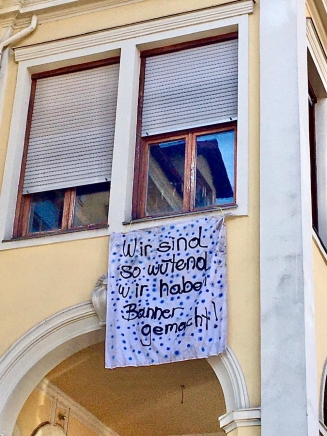 Wir sind
so wütend
wir haben
Banner
gemacht!